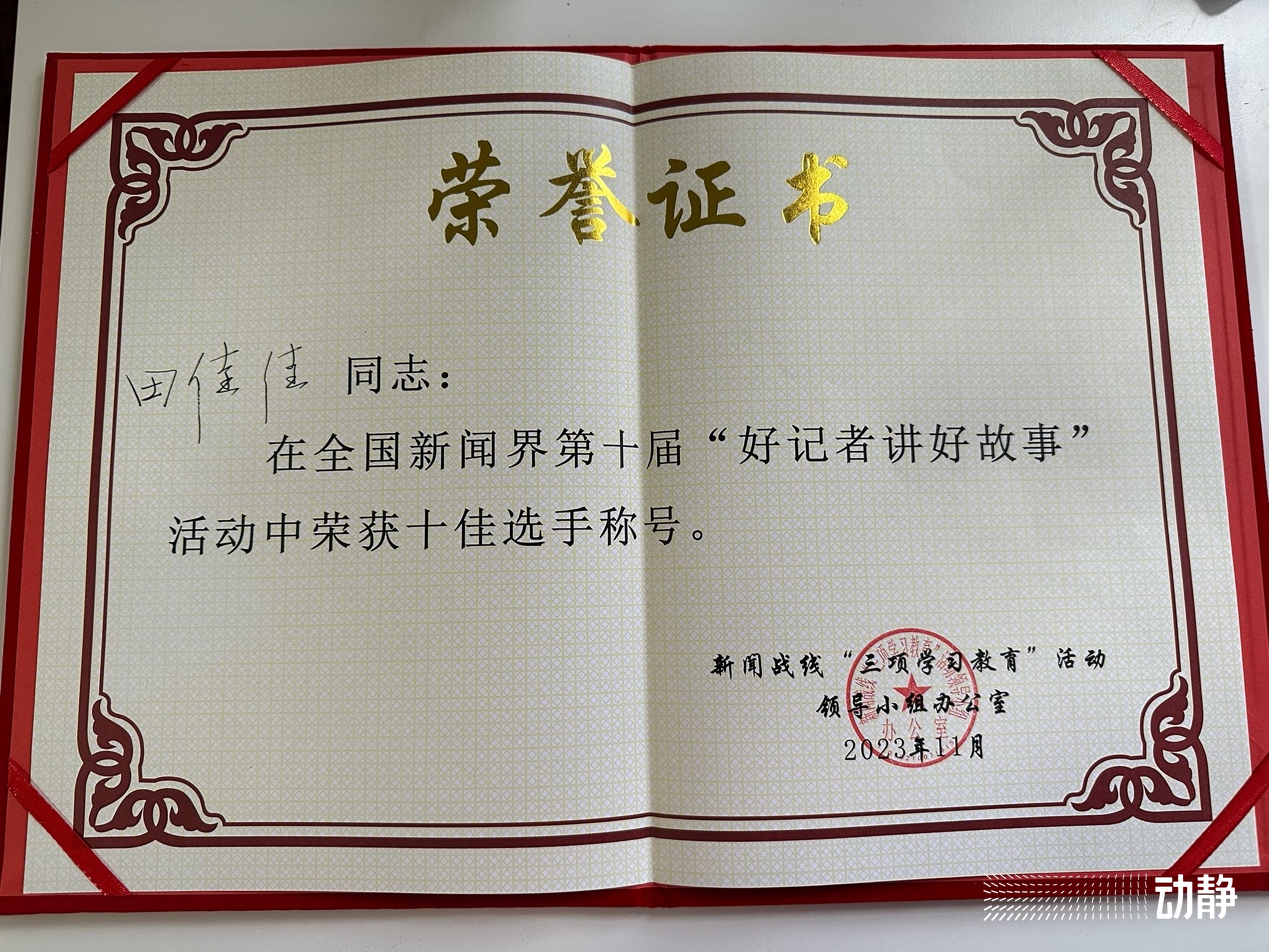 荣誉证书
田佳佳 同志：
在全国新闻界第十届“好记者讲好故事”
活动中荣获十佳选手称号。
新闻战线“三项学习教育”活动
领导小组办公室
2023年11月
办公室
动静